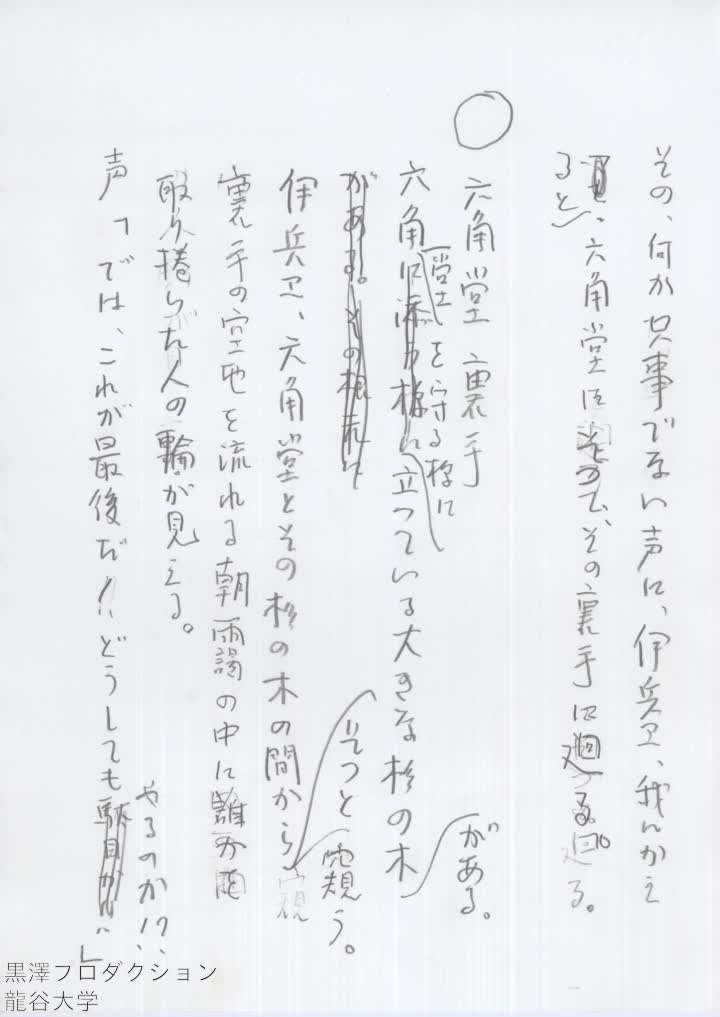 その、何か只事でない声に、伊兵卫、我んかえ
ると、六角堂に そって、その裏手に廻る。
○
六角堂 裏手
六角堂を守る様に立っている大きな杉の木
がある。
伊兵卫、六角堂とその杉の木の間から
そっと窺う。
裏手の空地を流れる朝雨靄の中に
取り捲かれた人の輪が見える。
声「では、これが最後だ!!どうしても
やるのか!?」
黒澤プロダクション
龍谷大学